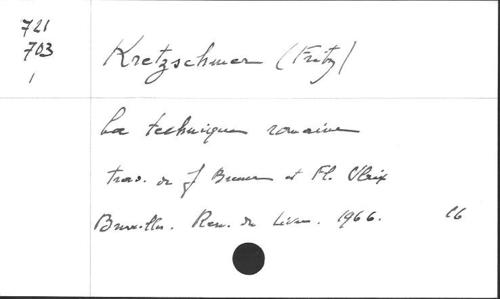 721
703
1
Kretzschmer (Fritz)
La technique romaine
trad. de J Breuer et Fl. Ulrix
Bruxelles. Ren. du Livre. 1966. 16